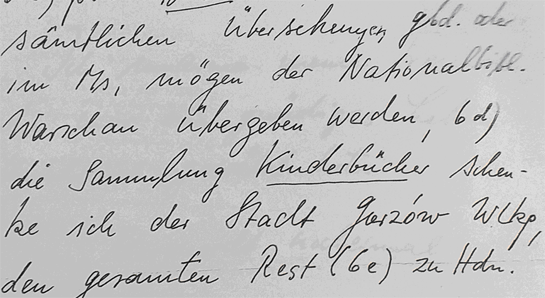 sämtlichen Übersetzungen, gbd. oder
im Ms, mögen der Nationalbibl.
Warschau übergeben werden, 6d)
die Sammlung Kinderbücher schen-
ke ich der Stadt Gorzów Wlkp,
den gesamten Rest (6e) zu Hdn.